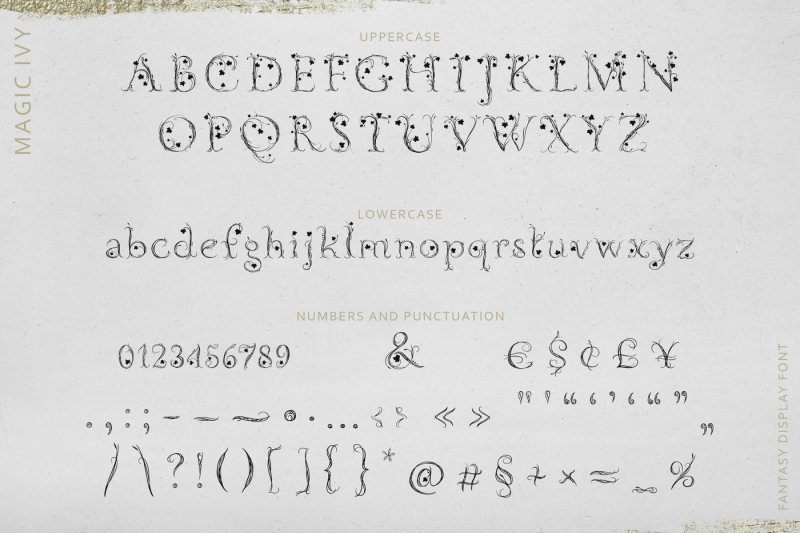 MAGIC IVY
UPPERCASE
ABCDEFGHIJKLMN
OPQRSTUVWXYZ
LOWERCASE
abcdefghijklmnopqrstuvwxyz
NUMBERS AND PUNCTUATION
0123456789 & €$¢£¥
.,:;-–—~•·…‹›«» "'“‘’‘“” „
/\?!()[]{}* @#§+×≈_%
FANTASY DISPLAY FONT